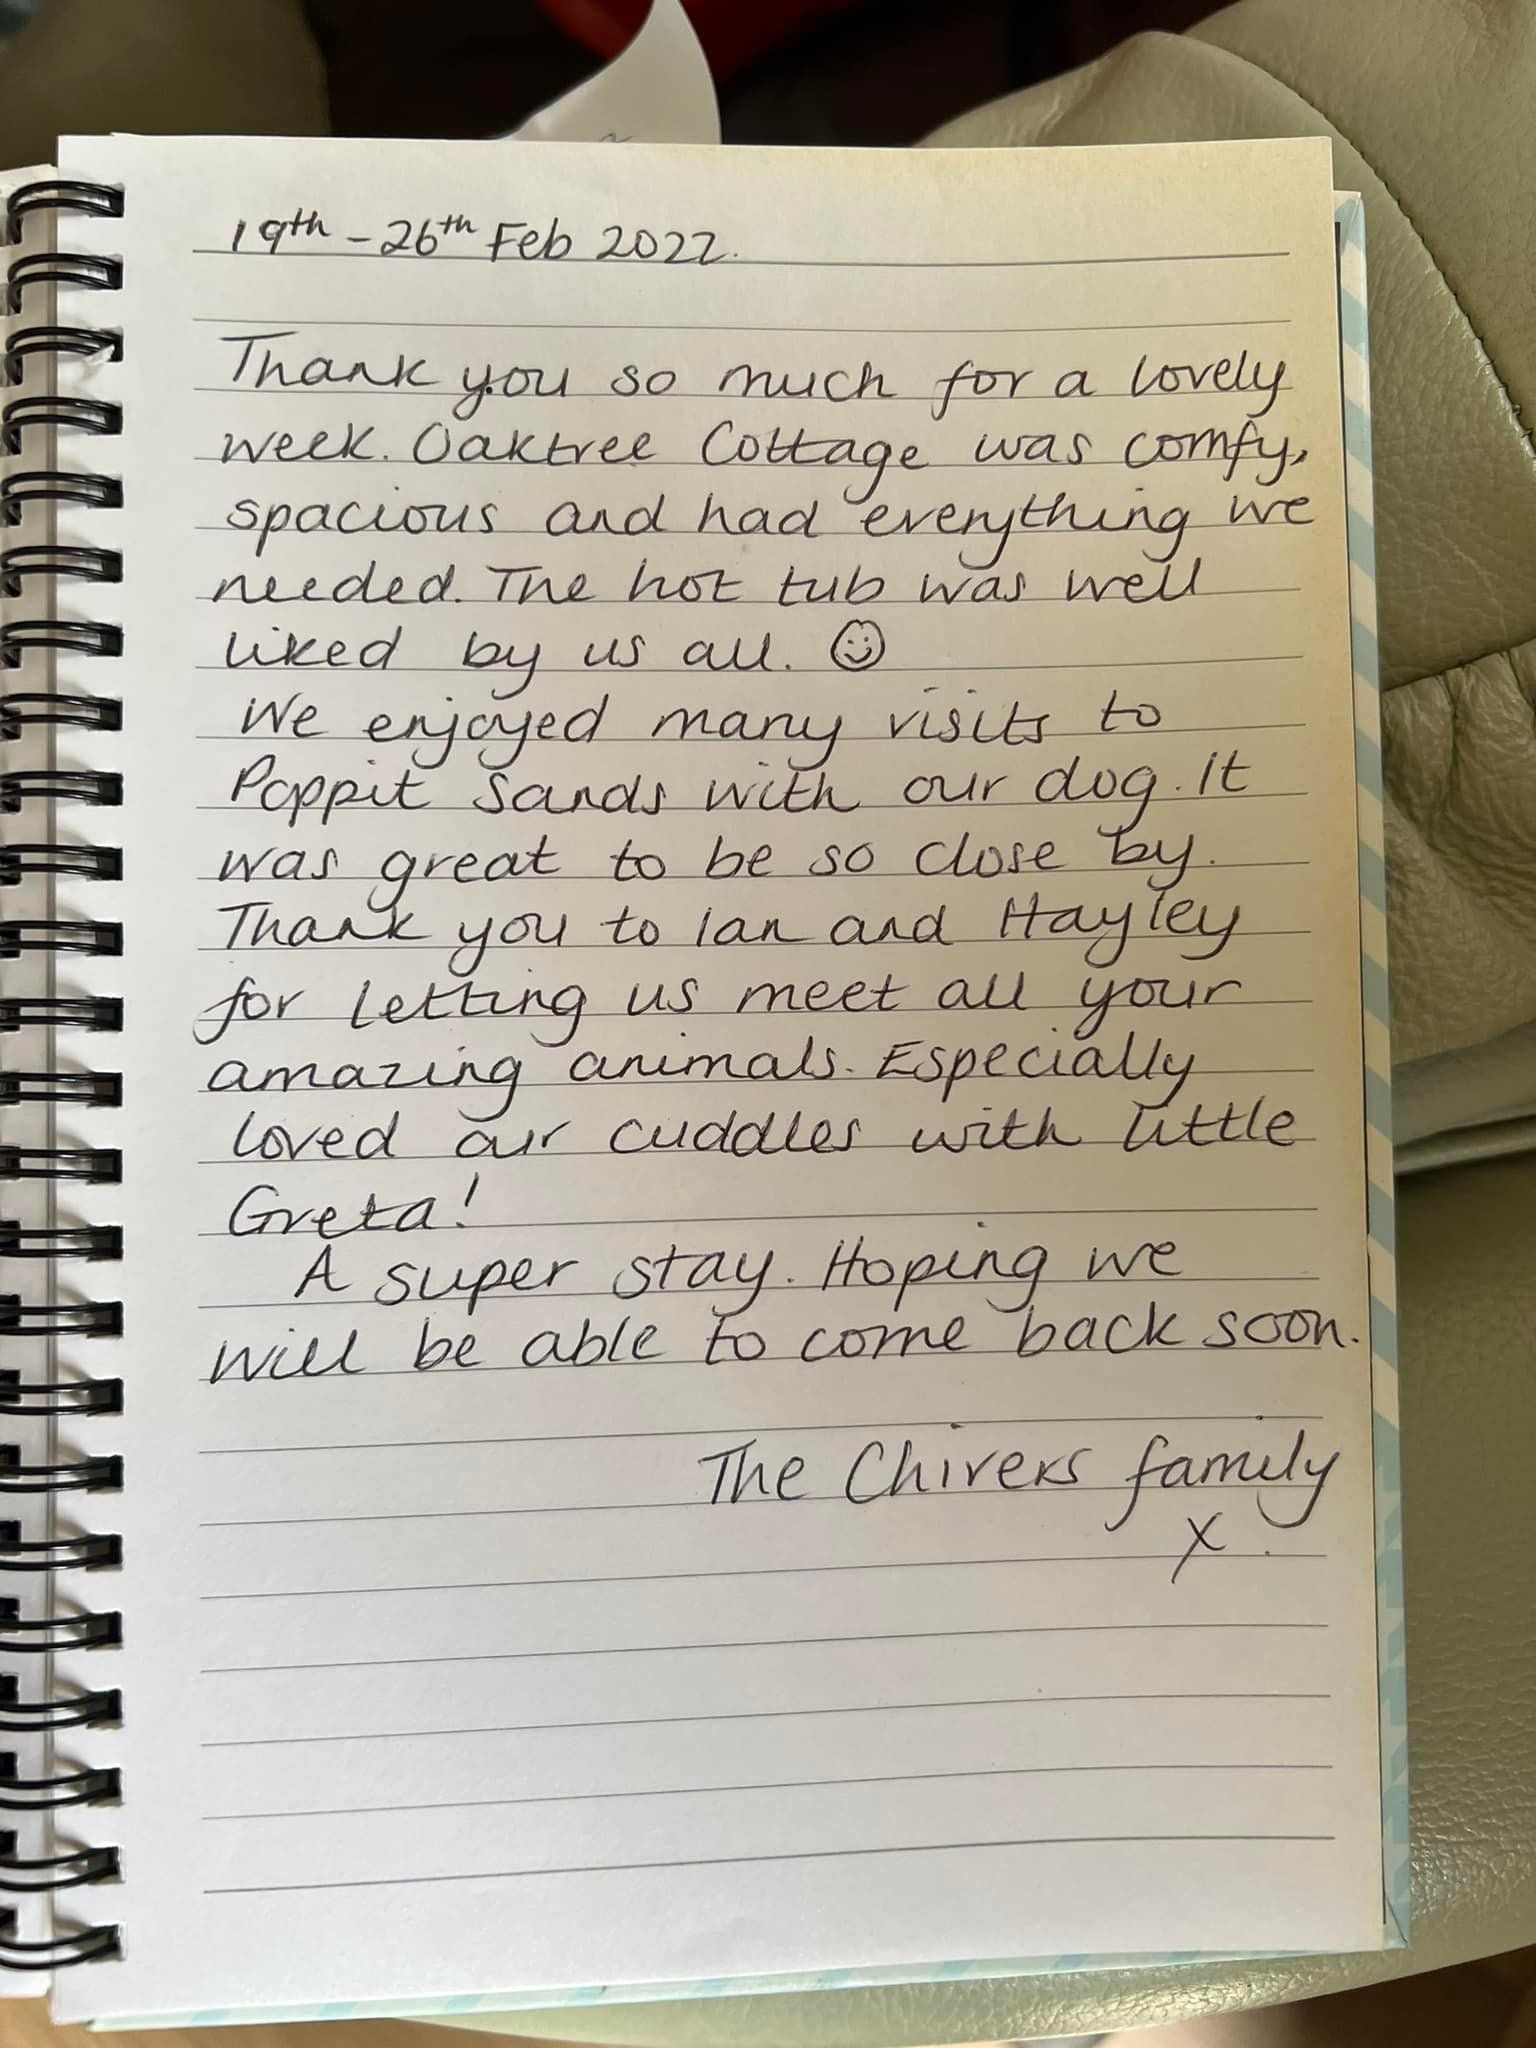 19th - 26th Feb 2022.
Thank you so much for a lovely
week. Oaktree Cottage was comfy,
spacious and had everything we
needed. The hot tub was well
liked by us all. ☺
We enjoyed many visits to
Poppit Sands with our dog. It
was great to be so close by.
Thank you to Ian and Hayley
for letting us meet all your
amazing animals. Especially
loved our cuddles with little
Greta!
A super stay. Hoping we
will be able to come back soon.
The Chivers family
x.